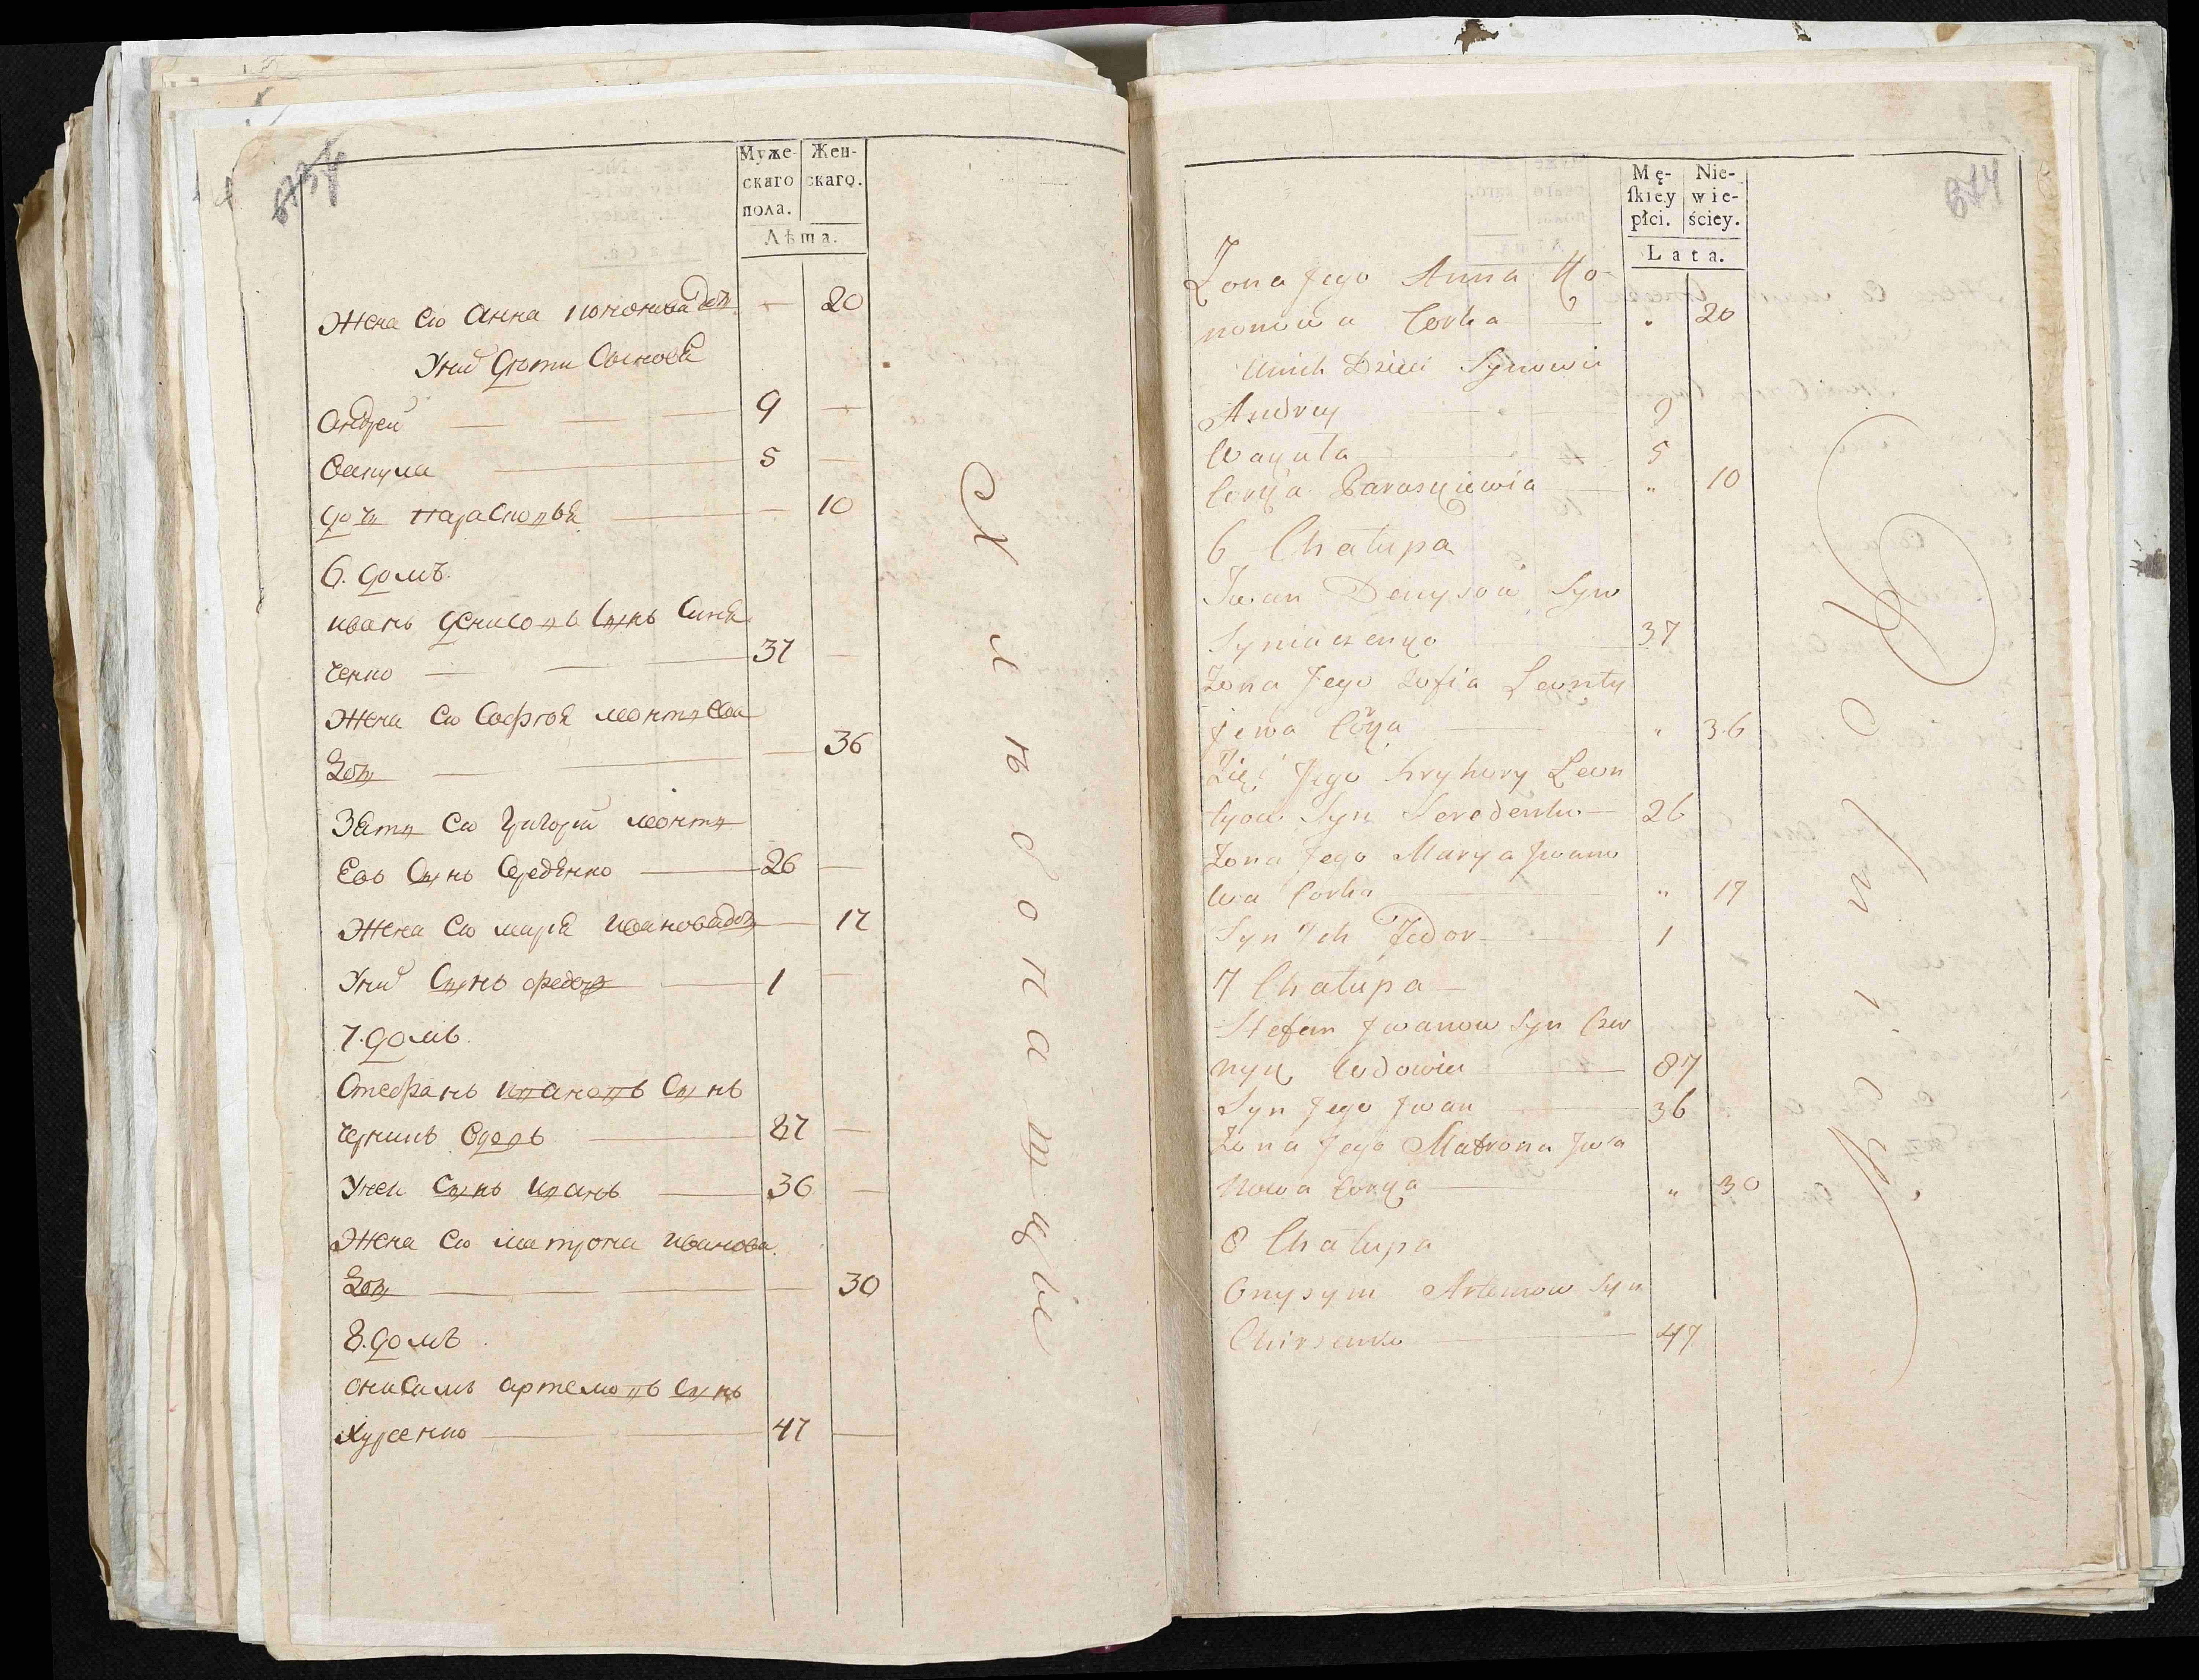 Муже-
скаго
пола.
Жен-
скаго.
Лѣта.
Жена Ево Анна Кононова дочь — 20
У них дѣти Сыновя
Андрей — 9 —
Вакула — 5 —
дочь Парасковья — 10
6. домъ.
иванъ денисовъ Сынъ Синя
ченко — 37 —
Жена Ево Софія леонтиева
дочь — 36
Зять Ево Григорий леонти
Евъ Сынъ Середенко — 26 —
Жена Ево маря ивановадочь — 17
У них Сынъ федоръ — 1 —
7. домъ.
Стефанъ ивановъ Сынъ
Чернишъ вдовъ — 87 —
У неи Сынъ иванъ — 36 —
Жена Ево матрона иванова
дочь — 30
8. домъ.
онисимъ артемовъ Сынъ
Хуренко — 47 —
Хлѣбопашцы
674
Mę-
skiey
płci.
Nie-
wie-
ściey.
Lata.
Zona Jego Anna Ko-
nonowa Corka — " 20
Unich Dzieci Synowie
Andrey 9
Wakuła 5
Corka Paraskiewia — " 10
6 Chatupa
Iwan Denysow Syn
Syniaczenko 37
Zona Jego Zofia Leonty
jewa Corka " 36
Zięć Jego Hryhory Leon
tyow Syn Seredenko — 26
Zona Jego Marya Jwano
wa Corka " 17
Syn Ich Fedor 1
7 Chatupa —
Stefan Jwanow Syn Czer
nysz Wdowiec 87
Syn Jego Jwan 36
Zona Jego Matrona Jwa
nowa Corka " 30
8 Chatupa
Onysym Artemow Syn
Chirenko 47
Rolnicy